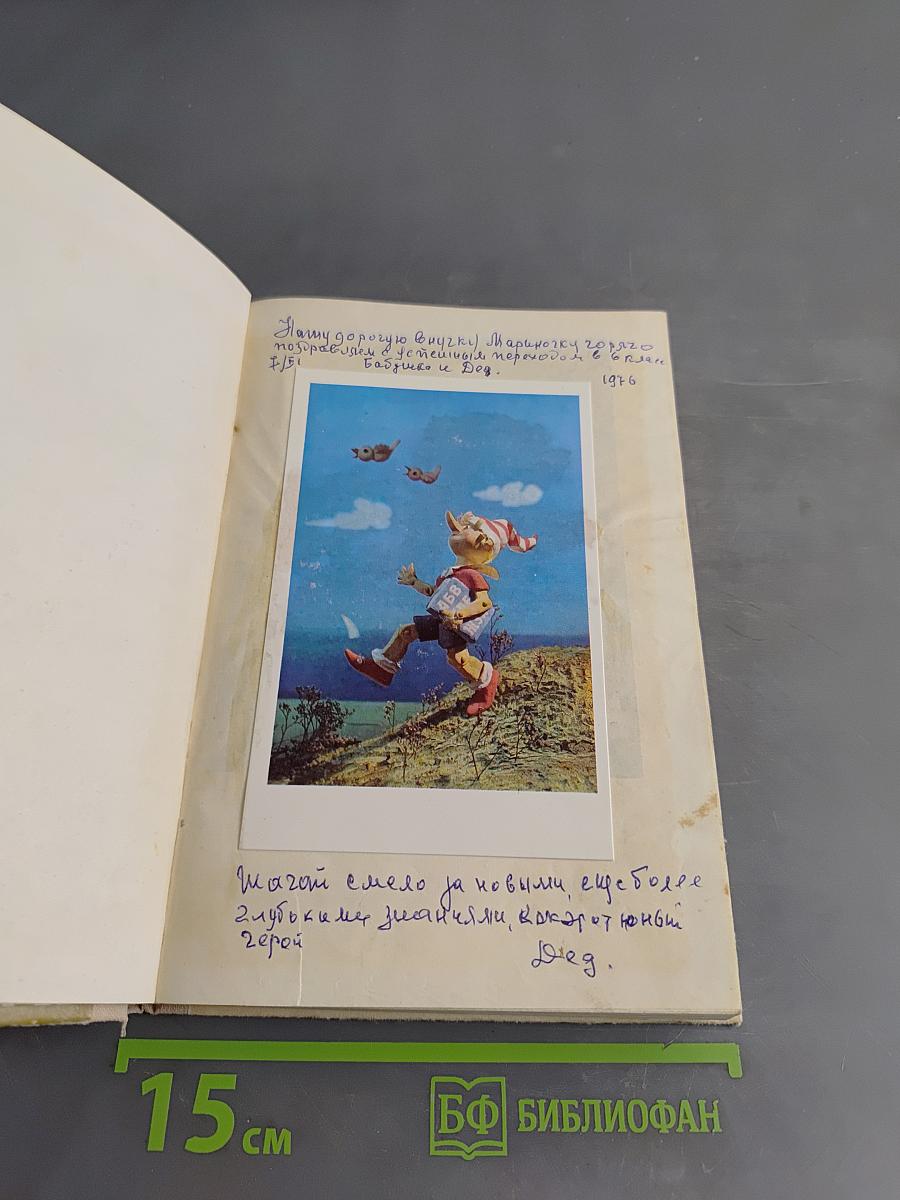 Нашу дорогую внучку Мариночку горячо
поздравляем с успешным переходом в 6 клас
Бабушка и Дед. 1976
АБВ
Шагай смело за новыми, еще более
глубокими знаниями, как этот юный
герой
Дед.
15 см
БФ БИБЛИОФАН